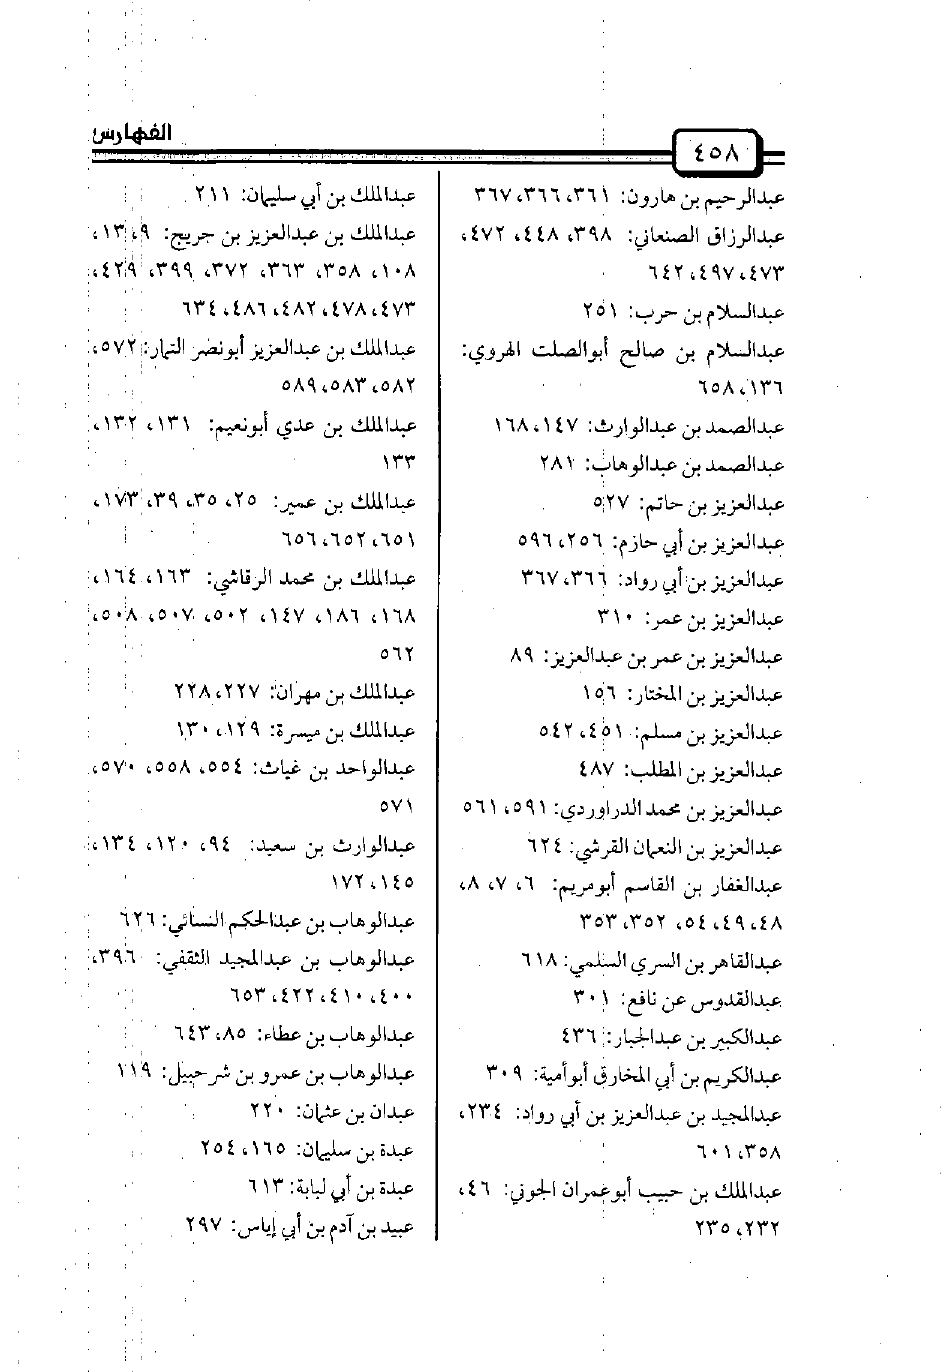 الفهارس
٤٥٨
عبدالرحيم بن هارون: ٣٦١، ٣٦٦، ٣٦٧
عبدالرزاق الصنعاني: ٣٩٨، ٤٤٨، ٤٧٢،
٤٧٣، ٤٩٧، ٦٤٢
عبدالسلام بن حرب: ٢٥١
عبدالسلام بن صالح أبوالصلت الهروي:
١٣٦، ٦٥٨
عبدالصمد بن عبدالوارث: ١٤٧، ١٦٨
عبدالصمد بن عبدالوهاب: ٢٨١
عبدالعزيز بن حاتم: ٥٢٧
عبدالعزيز بن أبي حازم: ٢٥٦، ٥٩٦
عبدالعزيز بن أبي رواد: ٣٦٦، ٣٦٧
عبدالعزيز بن عمر: ٣١٠
عبدالعزيز بن عمر بن عبدالعزيز: ٨٩
عبدالعزيز بن المختار: ١٥٦
عبدالعزيز بن مسلم: ٤٥١، ٥٤٢
عبدالعزيز بن المطلب: ٤٨٧
عبدالعزيز بن محمد الدراوردي: ٥٩١، ٥٦١
عبدالعزيز بن النعمان القرشي: ٦٢٤
عبدالغفار بن القاسم أبومريم: ٦، ٧، ٨،
٤٨، ٤٩، ٥٤، ٣٥٢، ٣٥٣
عبدالقاهر بن السري السلمي: ٦١٨
عبدالقدوس عن نافع: ٣٠١
عبدالكبير بن عبدالجبار: ٤٣٦
عبدالكريم بن أبي المخارق أبوأمية: ٣٠٩
عبدالمجيد بن عبدالعزيز بن أبي رواد: ٢٣٤،
٣٥٨، ٦٠١
عبدالملك بن حبيب أبوعمران الجوني: ٤٦،
٢٣٢، ٢٣٥
عبدالملك بن أبي سليمان: ٢١١
عبدالملك بن عبدالعزيز بن جريج: ٩، ١٣،
١٠٨، ٣٥٨، ٣٦٣، ٣٧٢، ٣٩٩، ٤٢٩،
٤٧٣، ٤٧٨، ٤٨٢، ٤٨٦، ٦٣٤
عبدالملك بن عبدالعزيز أبونضر التمار: ٥٧٢،
٥٨٢، ٥٨٣، ٥٨٩
عبدالملك بن عدي أبونعيم: ١٣١، ١٣٢،
١٣٣
عبدالملك بن عمير: ٢٥، ٣٥، ٣٩، ١٧٣،
٦٥١، ٦٥٢، ٦٥٦
عبدالملك بن محمد الرقاشي: ١٦٣، ١٦٤،
١٦٨، ١٨٦، ١٤٧، ٥٠٢، ٥٠٧، ٥٠٨،
٥٦٢
عبدالملك بن مهران: ٢٢٧، ٢٢٨
عبدالملك بن ميسرة: ١٢٩، ١٣٠
عبدالواحد بن غياث: ٥٥٤، ٥٥٨، ٥٧٠،
٥٧١
عبدالوارث بن سعيد: ٩٤، ١٢٠، ١٣٤،
١٤٥، ١٧٢
عبدالوهاب بن عبدالحكم النسائي: ٦٢٦
عبدالوهاب بن عبدالمجيد الثقفي: ٣٩٦،
٤٠٠، ٤١٠، ٤٢٢، ٦٥٣
عبدالوهاب بن عطاء: ٨٥، ٦٤٣
عبدالوهاب بن عمرو بن شرحبيل: ١١٩
عبدان بن عثمان: ٢٢٠
عبدة بن سليمان: ١٦٥، ٢٥٤
عبدة بن أبي لبابة: ٦١٣
عبيد بن آدم بن أبي إياس: ٢٩٧